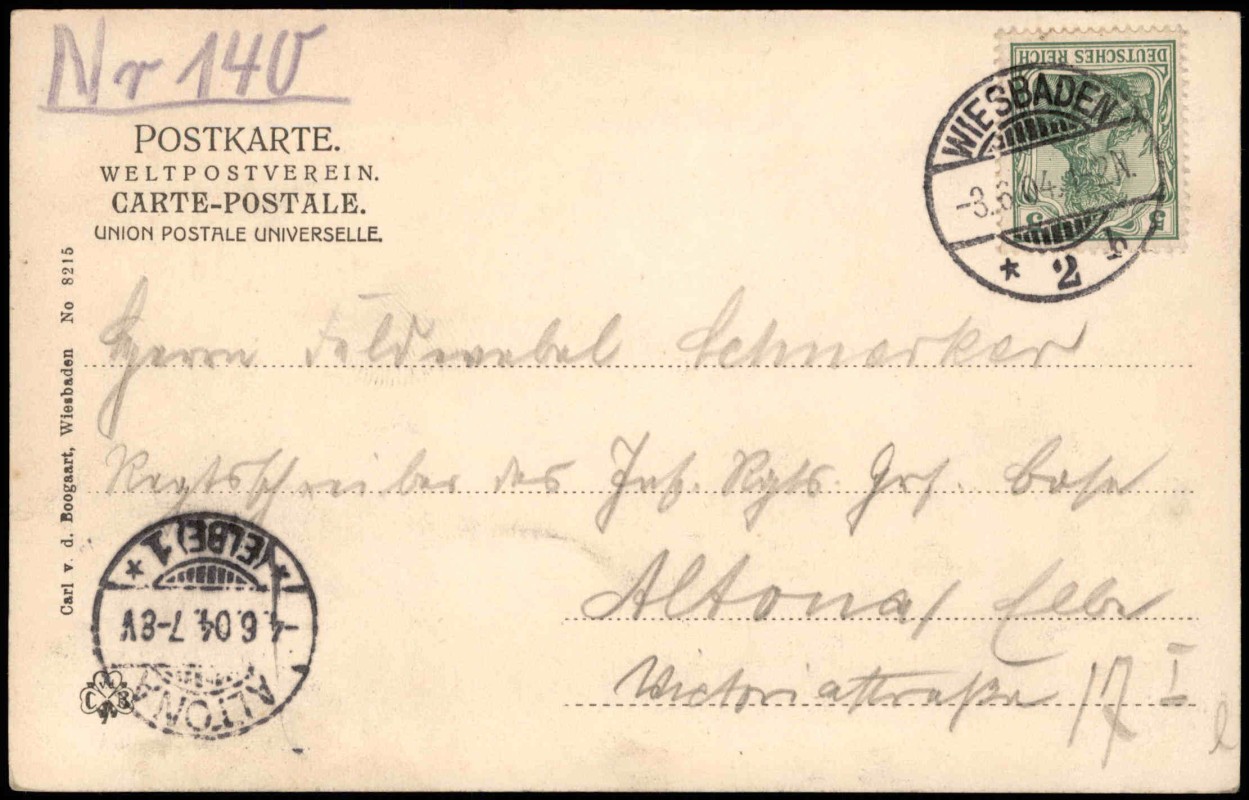 Nr 140
POSTKARTE.
WELTPOSTVEREIN.
CARTE-POSTALE.
UNION POSTALE UNIVERSELLE.
DEUTSCHES REICH
5 5
WIESBADEN
-3.6.04. 1-2N.
* 2 b
Carl v. d. Boogaart, Wiesbaden No 8215
Herrn Feldwebel Schnarkar
Regtsschreiber des Inf. Rgts. Grf. Bose
Altona/ Elbe
Victoriastraße 17 I
ALTONA
-4.6.04. 7-8V
* (ELBE) 1 *
C v d B